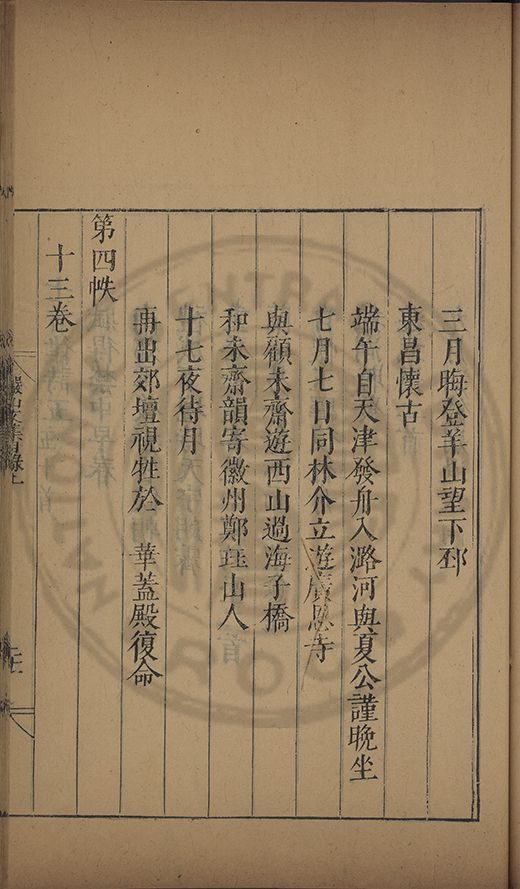 三月晦登羊山望下邳
東昌懷古
端午自天津發舟入潞河與夏公謹晚坐
七月七日同林介立遊廣恩寺
與顧未齋遊西山過海子橋
和未齋韻寄徽州鄭珏山人
十七夜待月
再出郊壇視牲於 華蓋殿復命
第四帙
十三卷